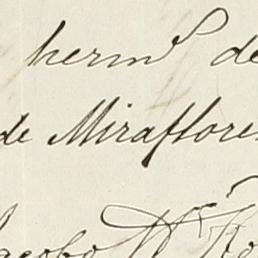 hermº de
de Miraflores
Jacobo Wk Ro